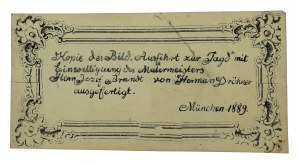 Kopie des Bild. Ausfahrt zur "Jagd" mit
Einwilligung des Malermeisters
Herrn Josef Brandt von Herman
ausgefertigt.
München 1889.